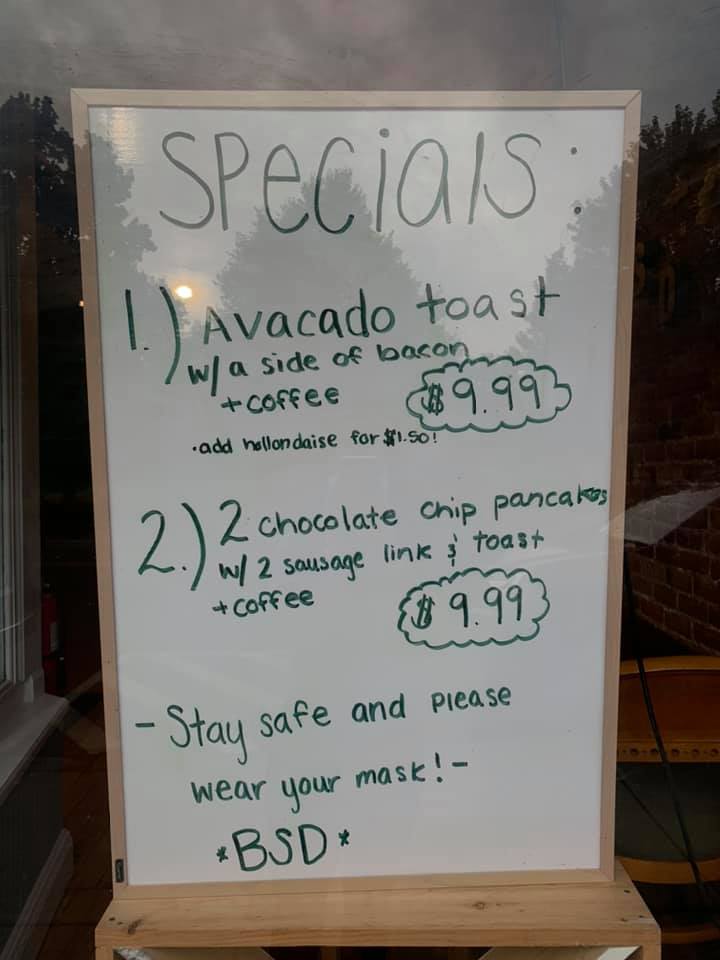 Specials:
1.) Avacado toast
w/ a side of bacon
+ coffee
$9.99
·add hollondaise for $1.50!
2.) 2 chocolate chip pancakes
w/ 2 sausage link & toast
+ coffee
$9.99
- Stay safe and please
wear your mask! -
*BSD*